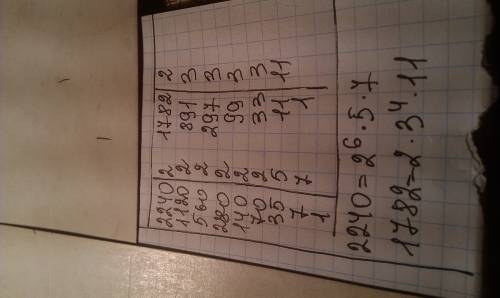 2240 2 1782 2
1120 2 891 3
560 2 297 3
280 2 99 3
140 2 33 3
70 2 11 11
35 5 1
7 7
1
2240=2⁶·5·7
1782=2·3⁴·11